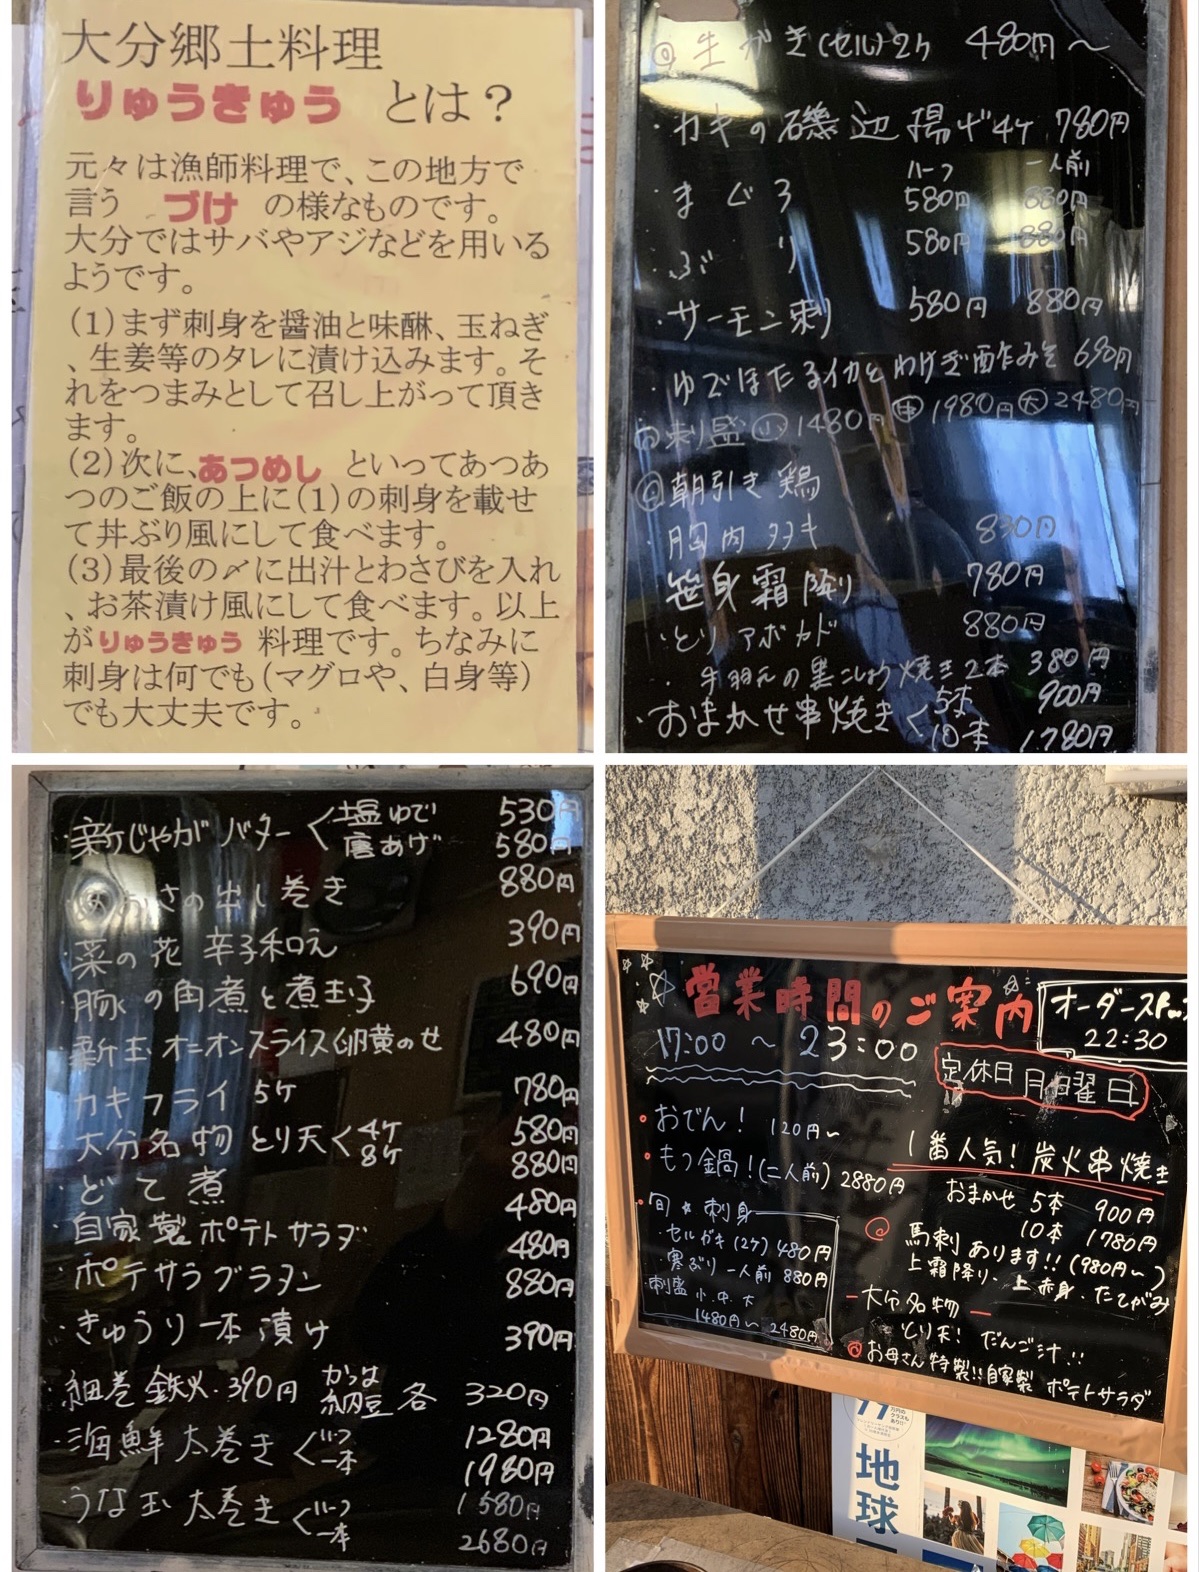 大分郷土料理
りゅうきゅう とは？
元々は漁師料理で、この地方で
言う づけ の様なものです。
大分ではサバやアジなどを用いる
ようです。
(1)まず刺身を醤油と味醂、玉ねぎ
、生姜等のタレに漬け込みます。そ
れをつまみとして召し上がって頂き
ます。
(2)次に、あつめし といってあつあ
つのご飯の上に(1)の刺身を載せ
て丼ぶり風にして食べます。
(3)最後の〆に出汁とわさびを入れ
、お茶漬け風にして食べます。以上
がりゅうきゅう 料理です。ちなみに
刺身は何でも(マグロや、白身等)
でも大丈夫です。
◎生がき(セル)2ケ 480円〜
・カキの磯辺揚げ4ケ 780円
ハーフ 一人前
・まぐろ 580円 880円
・ぶり 580円 880円
・サーモン刺 580円 880円
・ゆでほたるイカとわけぎ酢みそ 690円
刺盛 ㊙小 1480円 ㊥ 1980円 大 2480円
朝引き鶏
・胸肉タタキ 830円
笹身霜降り 780円
・とりアボカド 880円
・手羽元の黒こしょう焼き2本 380円
・おまかせ串焼き< 5本 900円
10本 1,780円
・新じゃがバター< 塩ゆで 530円
唐あげ 580円
あおさの出し巻き 880円
・菜の花 辛子和え 390円
・豚の角煮と煮玉子 690円
・新玉オニオンスライス卵黄のせ 480円
・カキフライ 5ケ 780円
・大分名物 とり天< 4ケ 580円
8ケ 880円
・どて煮 480円
・自家製ポテトサラダ 480円
・ポテサラグラタン 880円
・きゅうり一本漬け 390円
・細巻 鉄火・390円 かっぱ 納豆 各 320円
・海鮮太巻き< ハーフ 1280円
一本 1980円
・うな玉 太巻き< ハーフ 1580円
一本 2680円
営業時間のご案内
17:00 〜 23:00
オーダーストップ
22:30
定休日 月曜日
おでん! 120円〜
もつ鍋!(二人前) 2880円
旬★刺身
・セルガキ(2ケ) 480円
寒ぶり 一人前 880円
・刺盛 小.中.大
1480円〜2480円
1番人気! 炭火串焼き
おまかせ 5本 900円
10本 1780円
馬刺あります!!(980円〜)
上霜降り、上赤身・たてがみ
大分名物
とり天! だんご汁!!
◎お母さん特製!!自家製 ポテトサラダ
地球